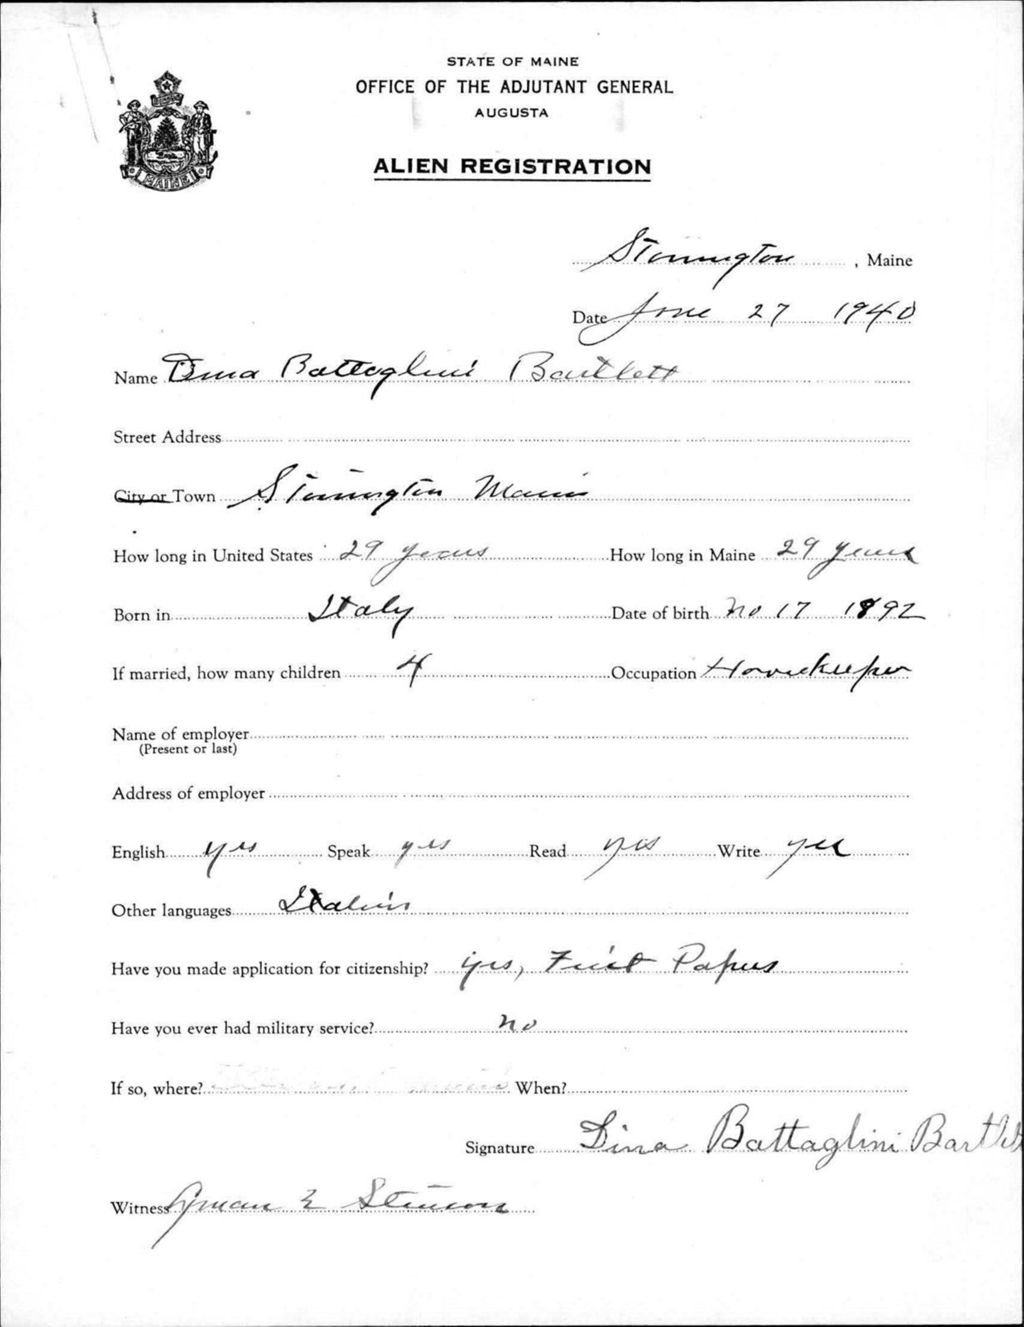 STATE OF MAINE
OFFICE OF THE ADJUTANT GENERAL
AUGUSTA
ALIEN REGISTRATION
MAINE
Stonington, Maine
Date June 27 1940
Name Dina Battaglini Bartlett
Street Address
City or Town Stonington Maine
How long in United States 29 years How long in Maine 29 years
Born in Italy Date of birth No 17 1892
If married, how many children 4 Occupation Housekeeper
Name of employer
(Present or last)
Address of employer
English yes Speak yes Read yes Write yes
Other languages Italian
Have you made application for citizenship? yes, First Papers
Have you ever had military service? no
If so, where? When?
Signature Dina Battaglini Bartlett
Witness Lyman E Stinson